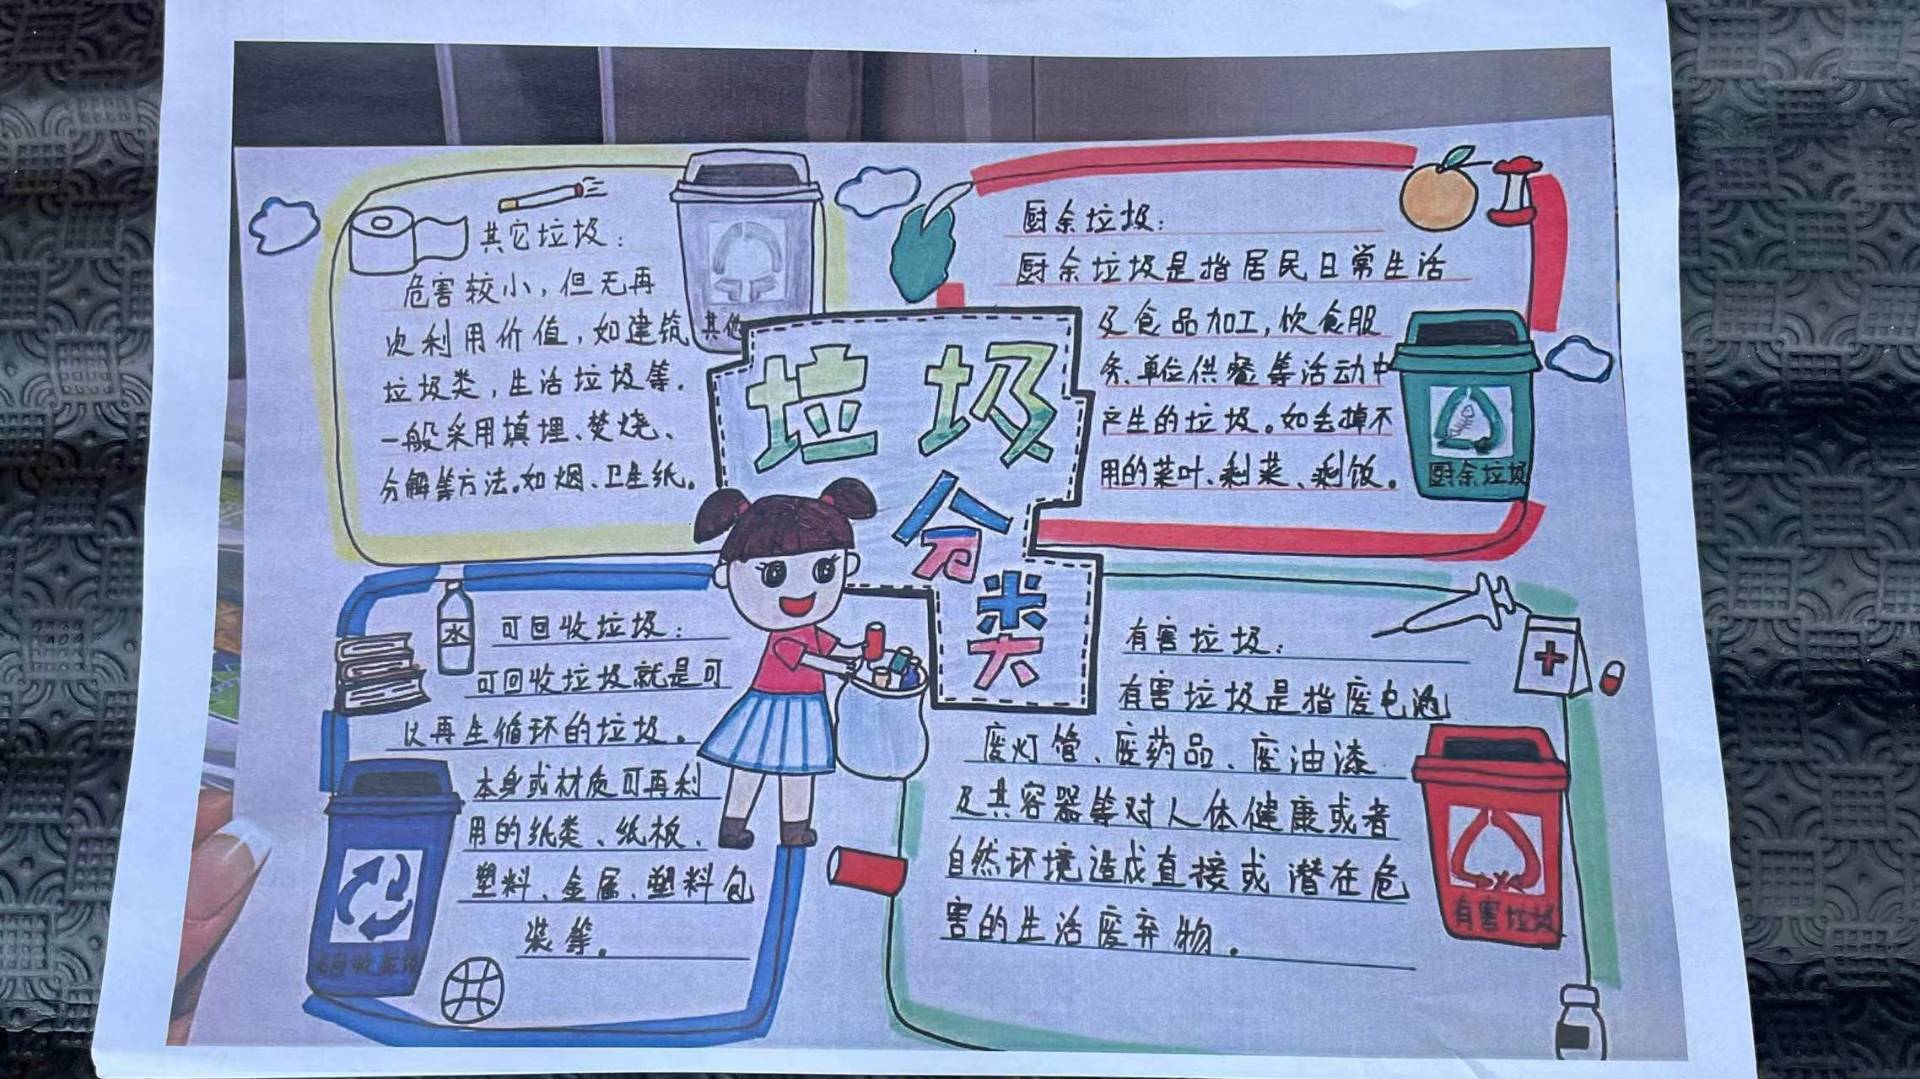 其它垃圾：
危害较小，但无再
次利用价值，如建筑
垃圾类，生活垃圾等.
一般采用填埋、焚烧、
分解等方法。如烟、卫生纸。
其他
垃圾
分
类
厨余垃圾：
厨余垃圾是指居民日常生活
及食品加工，饮食服
务、单位供餐等活动中
产生的垃圾。如丢掉不
用的菜叶、剩菜、剩饭。
厨余垃圾
水
可回收垃圾：
可回收垃圾就是可
以再生循环的垃圾。
本身或材质可再利
用的纸类、纸板、
塑料、金属、塑料包
装等。
可回收垃圾
有害垃圾：
有害垃圾是指废电池
废灯管、废药品、废油漆
及其容器等对人体健康或者
自然环境造成直接或潜在危
害的生活废弃物.
有害垃圾